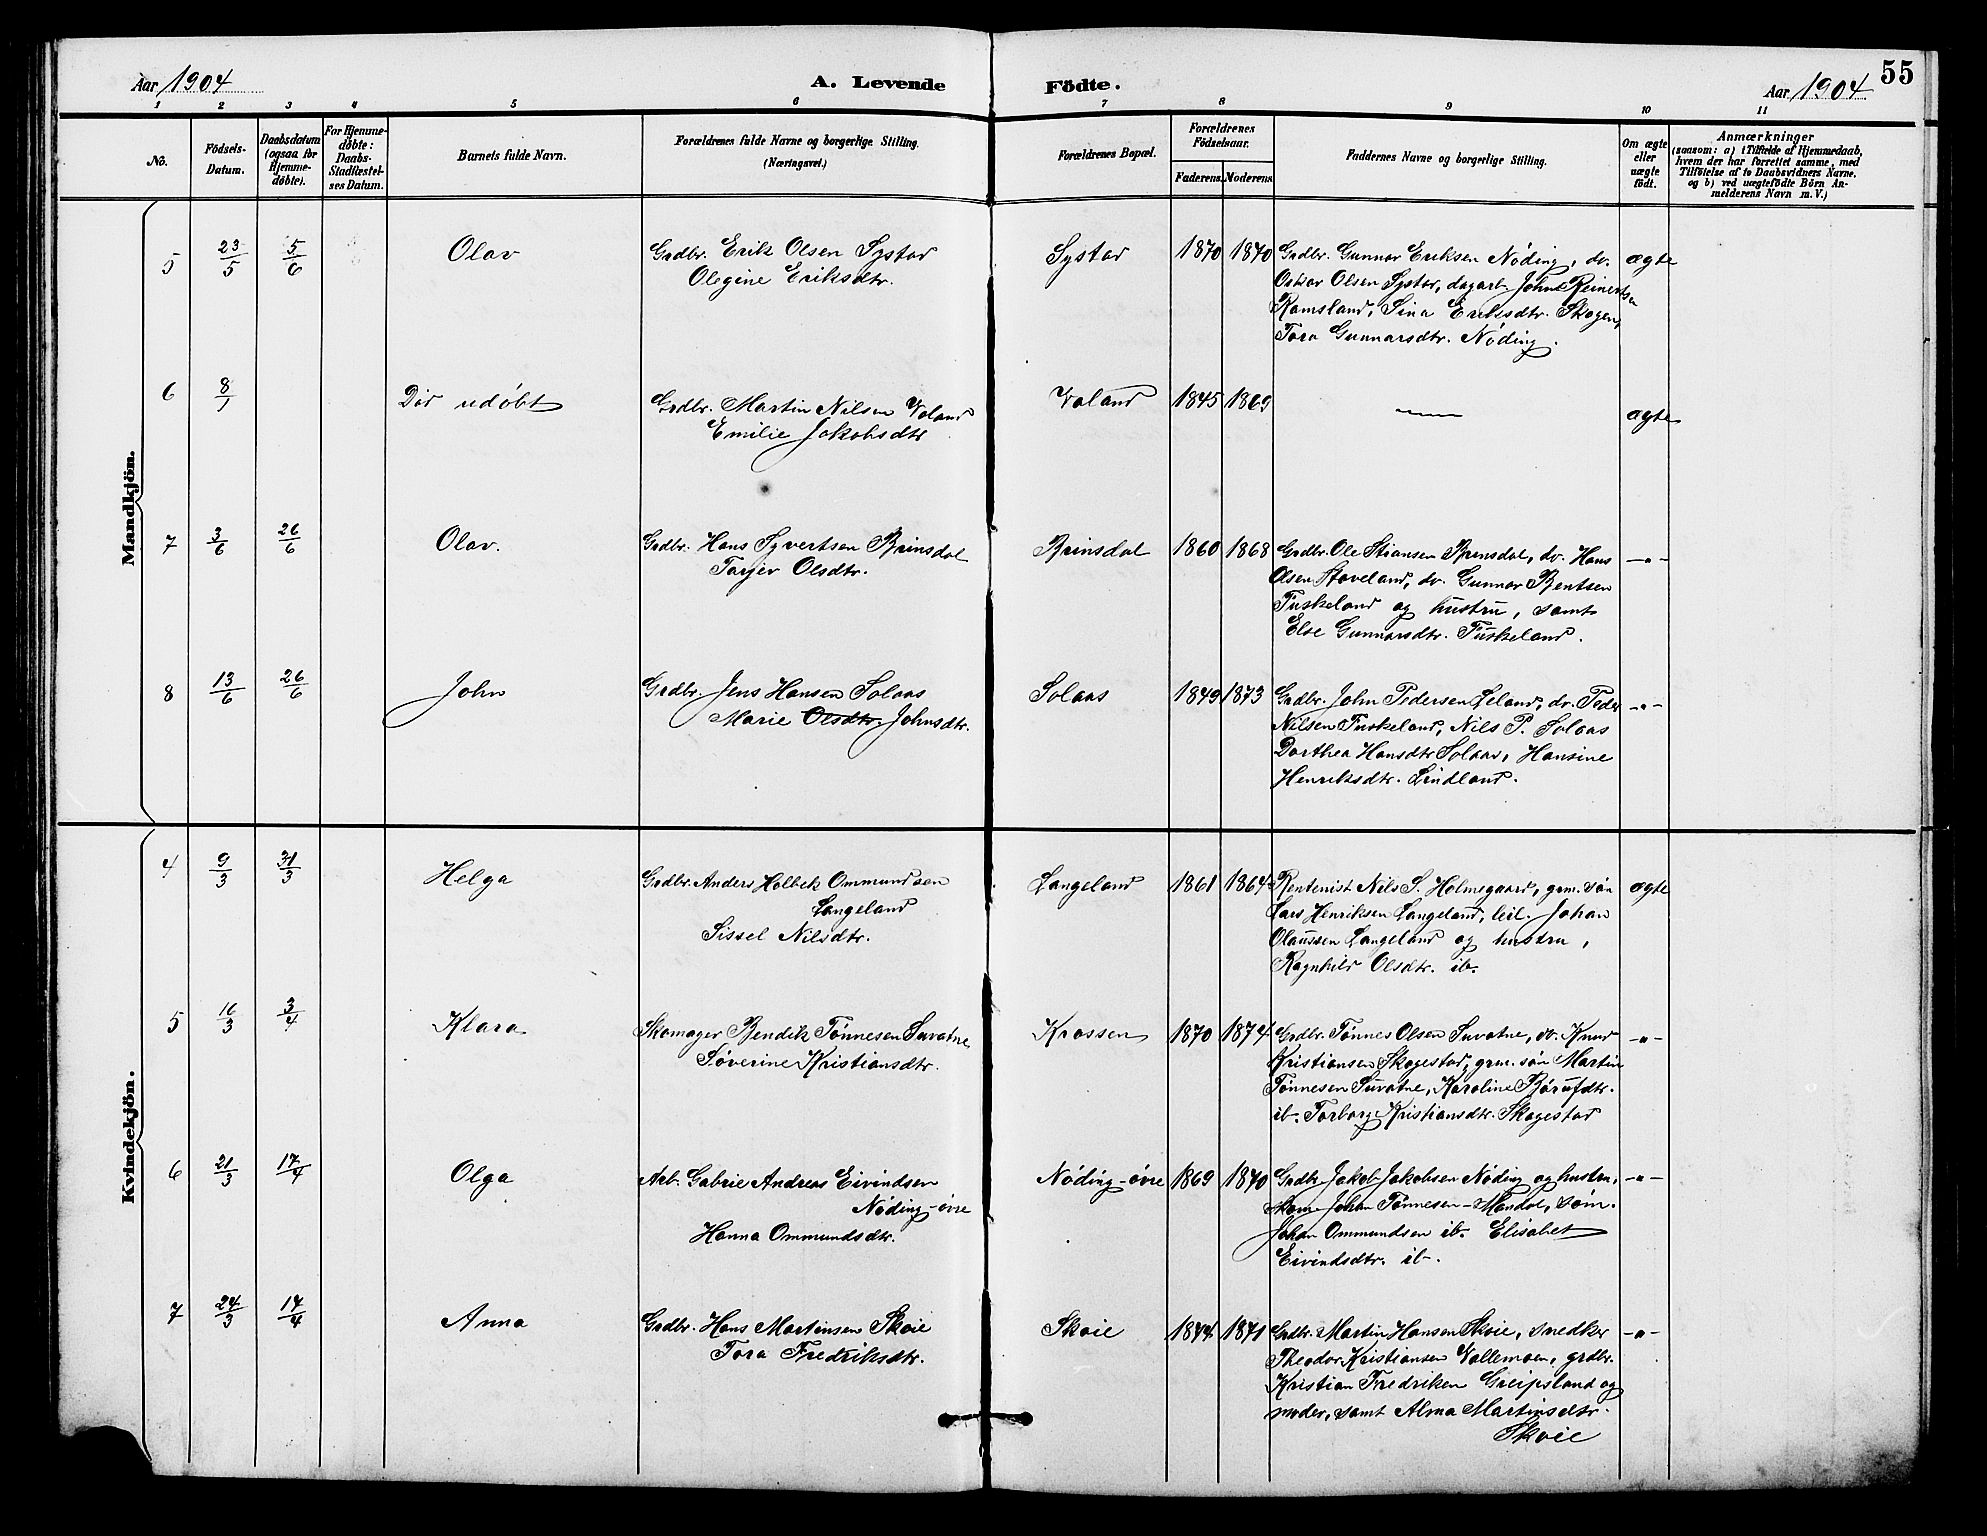 Aar 1904
A. Levende Födte.
Aar 1904
55
1 2 3 4 5 6 7 8 9 10 11
No.
Födsels-
Datum.
Daabsdatum
(ogsaa for
Hjemme-
døbte).
For Hjemme-
døbte:
Daabs-
Stadfæstel-
ses Datum.
Barnets fulde Navn.
Forældrenes fulde Navne og borgerlige Stilling.
(Næringsvei.)
Forældrenes Bopæl.
Forældrenes
Födselsaar.
Faderens. Moderens.
Faddernes Navne og borgerlige Stilling.
Om ægte
eller
uægte
födt.
Anmærkninger
(saasom: a) i Tilfælde af Hjemmedaab,
hvem der har forrettet samme, med
Tilføielse af to Daabsvidners Navne,
og b) ved uægtefödte Börn An-
melderens Navn m. V.)
Mandkjön.
5 23/5 5/6 Olav
Grdbr. Erik Olsen Systad
Olegine Eriksdtr.
Systad 1870 1870
Grdbr. Gunnar Eriksen Nöding, do.
Oskar Olsen Systad, dagarb. John Reinertsen
Ramsland, Sina Eriksdtr. Skogen,
Tora Gunnarsdtr. Nöding.
ægte
6 8/1 Död udöbt
Grdbr. Martin Nilsen Valand
Emilie Jakobsdtr
Valand 1845 1869
ægte
7 3/6 26/6 Olav.
Grdbr. Hans Syvertsen Brinsdal
Tarjer Olsdtr.
Brinsdal 1860 1868
Grdbr. Ole Stiansen Brinsdal, do. Hans
Olsen Staveland, do. Gunnar Bentsen
Tuskeland og hustru, samt
Else Gunnarsdtr. Tuskeland.
-"-
8 13/6 26/6 John
Grdbr. Jens Hansen Solaas
Marie Olsdtr. Johnsdtr.
Solaas 1849 1873
Grdbr. John Pedersen Leland, do. Peder
Nilsen Tuskeland, Nils P. Solaas
Dorthea Hansdtr Solaas, Hansine
Henriksdtr. Lindland.
-"-
Kvindekjön.
4 9/3 31/3 Helga
Grdbr. Anders Holbek Ommundsen
Langeland
Sissel Nilsdtr.
Langeland 1861 1864
Rentenist Nils S. Holmegaard, grm. sön
Lars Henriksen Langeland, leil. Johan
Olaussen Langeland og hustru,
Ragnhild Olsdtr. ib.
ægte
5 16/3 3/4 Klara
Skomager Bendik Tönnesen Suvatne
Söverine Kristiansdtr.
Krossen 1870 1874
Grdbr. Tönnes Olsen Suvatne, do. Knud
Kristiansen Skogestad, grm. sön Martin
Tönnesen Suvatne, Karoline Börufdtr.
ib. Torborg Kristiansdtr. Skogestad
-"-
6 21/3 17/4 Olga
Arb. Gabriel Andreas Eivindsen
Nöding-övre
Hanna Ommundsdtr.
Nöding-övre 1869 1870
Grdbr. Jakob Jakobsen Nöding og hustru,
skom. Johan Tönnesen-Mandal, söm.
Johan Ommundsen ib. Elisabet
Eivindsdtr. ib.
-"-
7 24/3 17/4 Anna
Grdbr. Hans Martinsen Skoie
Tora Fredriksdtr.
Skoie 1874 1871
Grdbr. Martin Hansen Skoie, snedker
Theodor Kristiansen Vallemoen, grdbr.
Kristian Fredriken Greipsland og
moder, samt Alma Martinsdtr.
Skoie
-"-